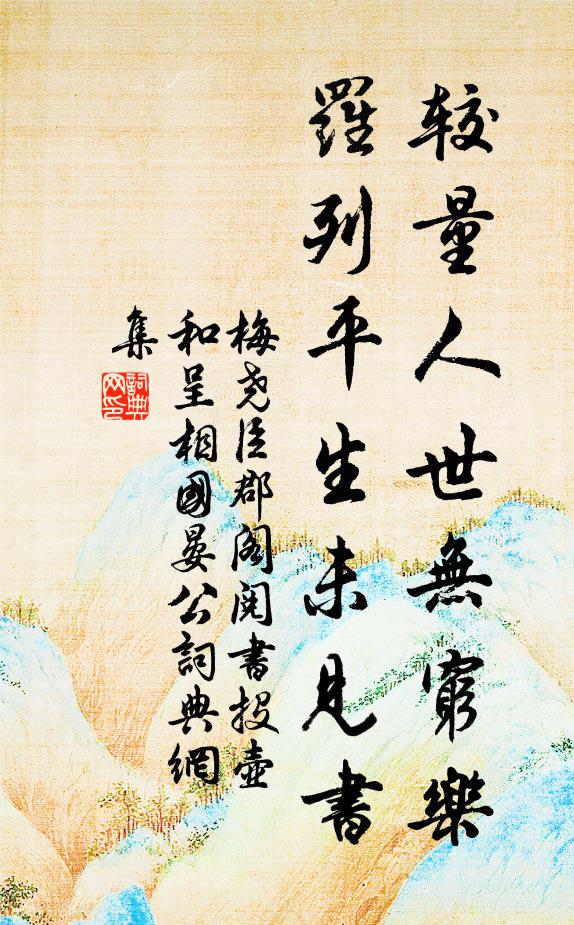 較量人世無窮樂
羅列平生未見書
梅尧臣郡閣閱書投壺
和呈相國晏公詞典網
集
詞典
网印